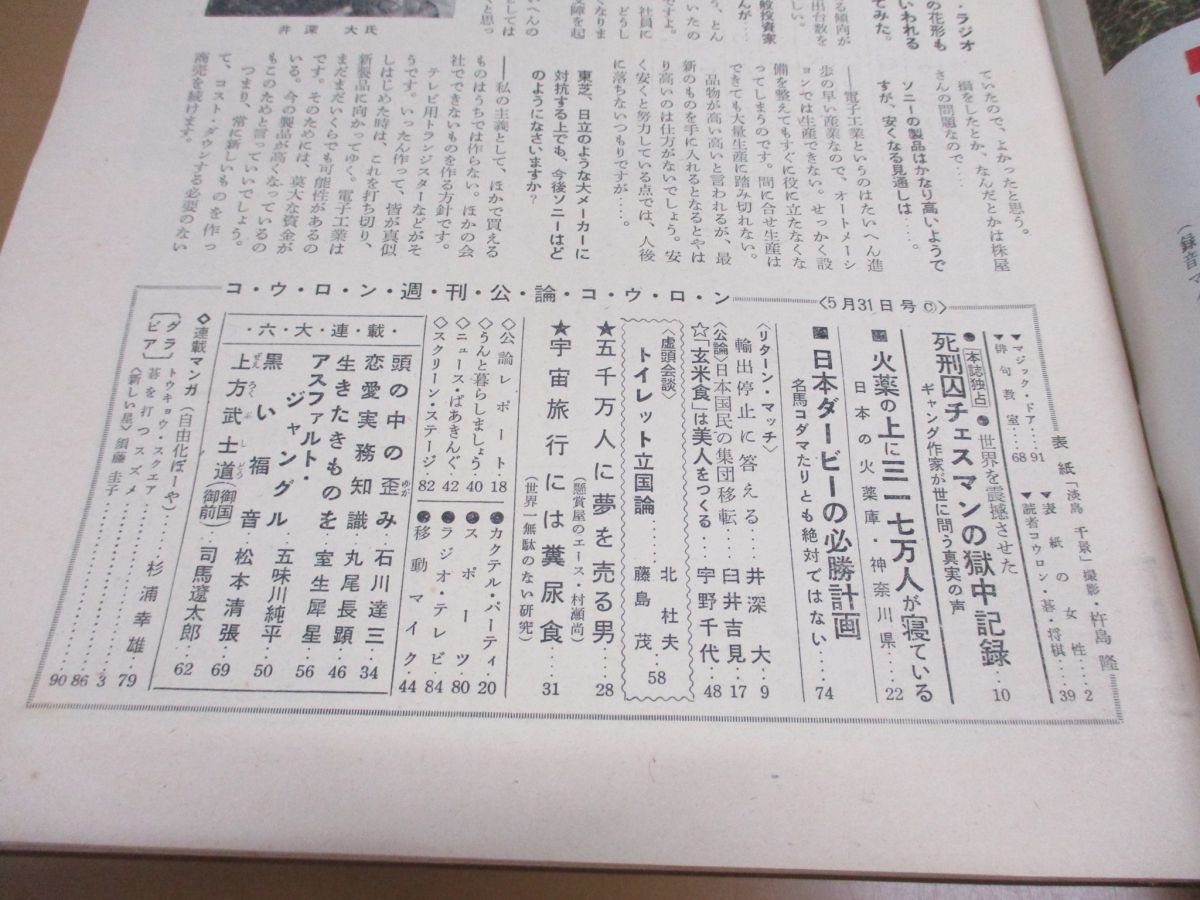 ・ラジオ
の花形も
いわれる
てみた。
る傾向が
出台数を
しい。
般投資家
んが……
井深大氏
ていたので、よかったと思う。
損をしたとか、なんだとかは株屋
さんの問題なので……
ソニーの製品はかなり高いようで
すが、安くなる見通しは……。
――電子工業というのはたいへん進
歩の早い産業なので、オートメーシ
ョンでは生産できない。せっかく設
備を整えてもすぐに役に立たなくな
ってしまうのです。間に合せ生産は
できても大量生産に踏み切れない。
品物が高い高いと言われるが、最
新のものを手に入れるとなるとやは
り高いのは仕方がないでしょう。安
く安くと努力している点では、人後
に落ちないつもりですが……。
東芝、日立のような大メーカーに
対抗する上でも、今後ソニーはど
のようになさいますか？
――私の主義として、ほかで買える
ものはうちでは作らない。ほかの会
社でできないものを作る方針です。
テレビ用トランジスターなどがそ
うです。いったん作って、皆が真似
しはじめた時は、これを打ち切り、
新製品に向かってゆく。電子工業は
まだまだいくらでも可能性があるの
です。そのためには、莫大な資金が
いる。今の製品が高くなっているの
もこのためと言っていいでしょう。
つまり、常に新しいものを作っ
て、コスト・ダウンする必要のない
商売を続けます。
コ・ウ・ロ・ン・週・刊・公・論・コ・ウ・ロ・ン
〈5月31日号©〉
表紙「淡島千景」撮影・杵島隆
▼表紙の女性……2
▼読者コウロン・碁・将棋……39
▼マジック・ドア……91
▼俳句教室……68
●本誌独占●世界を震撼させた
死刑囚チェスマンの獄中記録……10
ギャング作家が世に問う真実の声
火薬の上に三一七万人が寝ている
日本の火薬庫・神奈川県……22
日本ダービーの必勝計画
名馬コダマたりとも絶対ではない……74
〈リターン・マッチ〉
輸出停止に答える……井深大……9
〈公論〉日本国民の集団移転……臼井吉見……17
☆「玄米食」は美人をつくる……宇野千代……48
〈虚頭会談〉
トイレット立国論……北杜夫
藤島茂……58
★五千万人に夢を売る男……28
（懸賞屋のエース・村瀬尚）
★宇宙旅行には糞尿食……31
（世界一無駄のない研究）
◇公論レポート……18
◇うんと暮らしましょう……40
◇ニュース・ばあきんぐ……42
◇スクリーン・ステージ……82
●カクテル・パーティ……20
●スポーツ……80
●ラジオ・テレビ……84
●移動マイク……44
・六大連載・
頭の中の歪み ゆが 石川達三……34
恋愛実務知識 丸尾長顕……46
生きたきものを 室生犀星……56
アスファルト・ジャングル 五味川純平……50
黒い福音 松本清張……69
上方武士道 ぜえろくぶしどう（御国御前）司馬遼太郎……62
◇連載マンガ（自由化ぼーや）……杉浦幸雄……79
〔グラビア〕トウキョウ・スクエア……3
碁を打つスズメ……86
〈新しい星〉須藤圭子……90